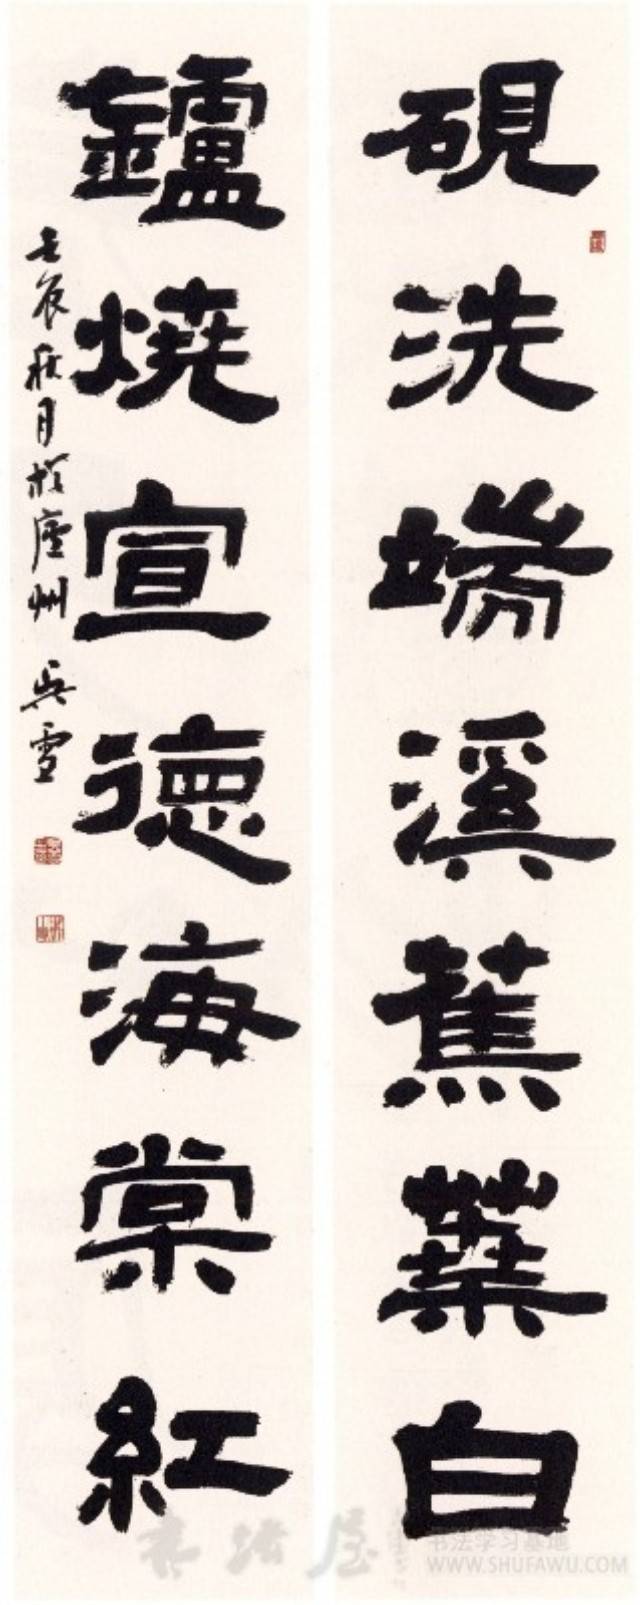 硯洗端溪蕉葉白
鑪燒宣德海棠紅
壬辰秋月於廬州 吳雪
书法屋
书法学习基地
WWW.SHUFAWU.COM